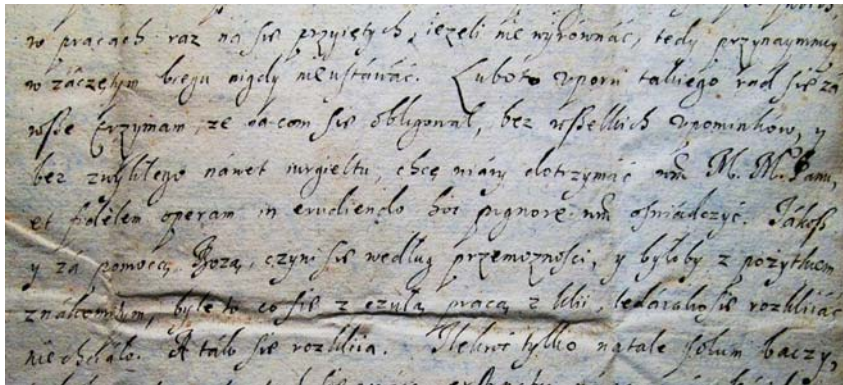 w pracach raz na się przyiętych, ieżeli nie wyrównać, tedy przynaymniey
w záczętym biegu nigdy nieustáwáć. Luboto vporu tákiego rad się zá
wsze trzymam, że na com się obligował, bez wszelkich vpominków, y
bez zwykłego náwet iurgieltu, chcę wiáry dotrzymáć M. M. Panu,
et fidelem operam in erudiendo hoc pignore oświadczyć. Jákosz
y zá pomocą Bożą, czyni się według przemożności, y byłoby z pożytkiem
znákomitym, byle to co się z czułą pracą z klii, ledáiáko się rozkliiáć
niechciáło. A ták się rozkliia. Ilekroć tylko natale solum baczy,